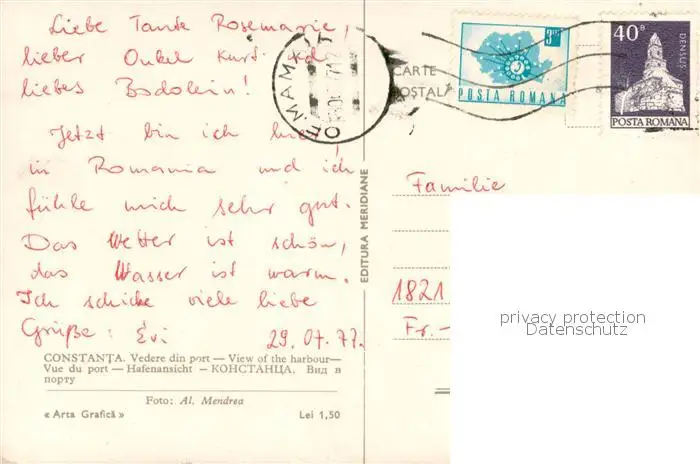 Liebe Tante Rosemarie,
lieber Onkel Kurt und
liebes Bodolein!
Jetzt bin ich hier
in Romania und ich
fühle mich sehr gut.
Das Wetter ist schön,
das Wasser ist warm.
Ich schicke viele liebe
Grüße: Évi 29.07.77.
CONSTANŢA. Vedere din port — View of the harbour—
Vue du port — Hafenansicht — КОНСТАНЦА. Вид в
порту
Foto: Al. Mendrea
« Arta Grafică » Lei 1,50
EDITURA MERIDIANE
CARTE
POŞTALĂ
POSTA ROMANA
40B
DENSUS
POSTA ROMANA
Familie
1821
Fr.-
privacy protection
Datenschutz